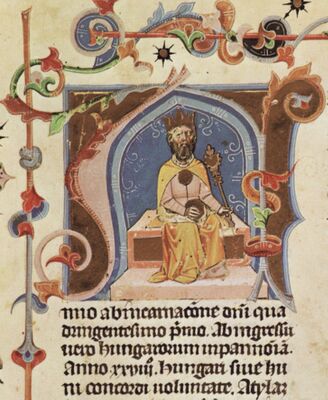 Anno ab incarnacōne dñi qua
dringentesimo p̄mo. Ab ingressu
uero hungarorum in pannoniā.
Anno xxviii. hungari siue hu
ni concordi uoluntate. Atylaz